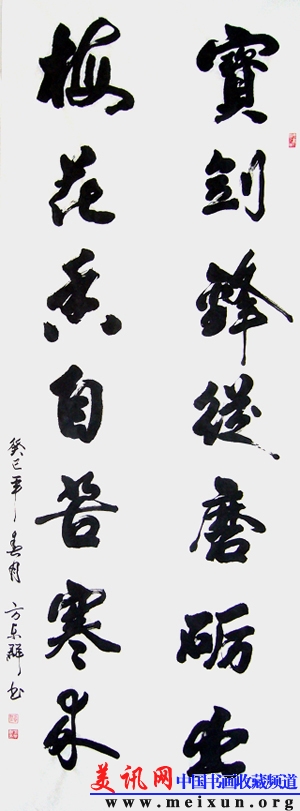 寶劍鋒從磨砺出
梅花香自苦寒来
癸巳年春月方东辉书
美讯网中国书画收藏频道
www.meixun.org